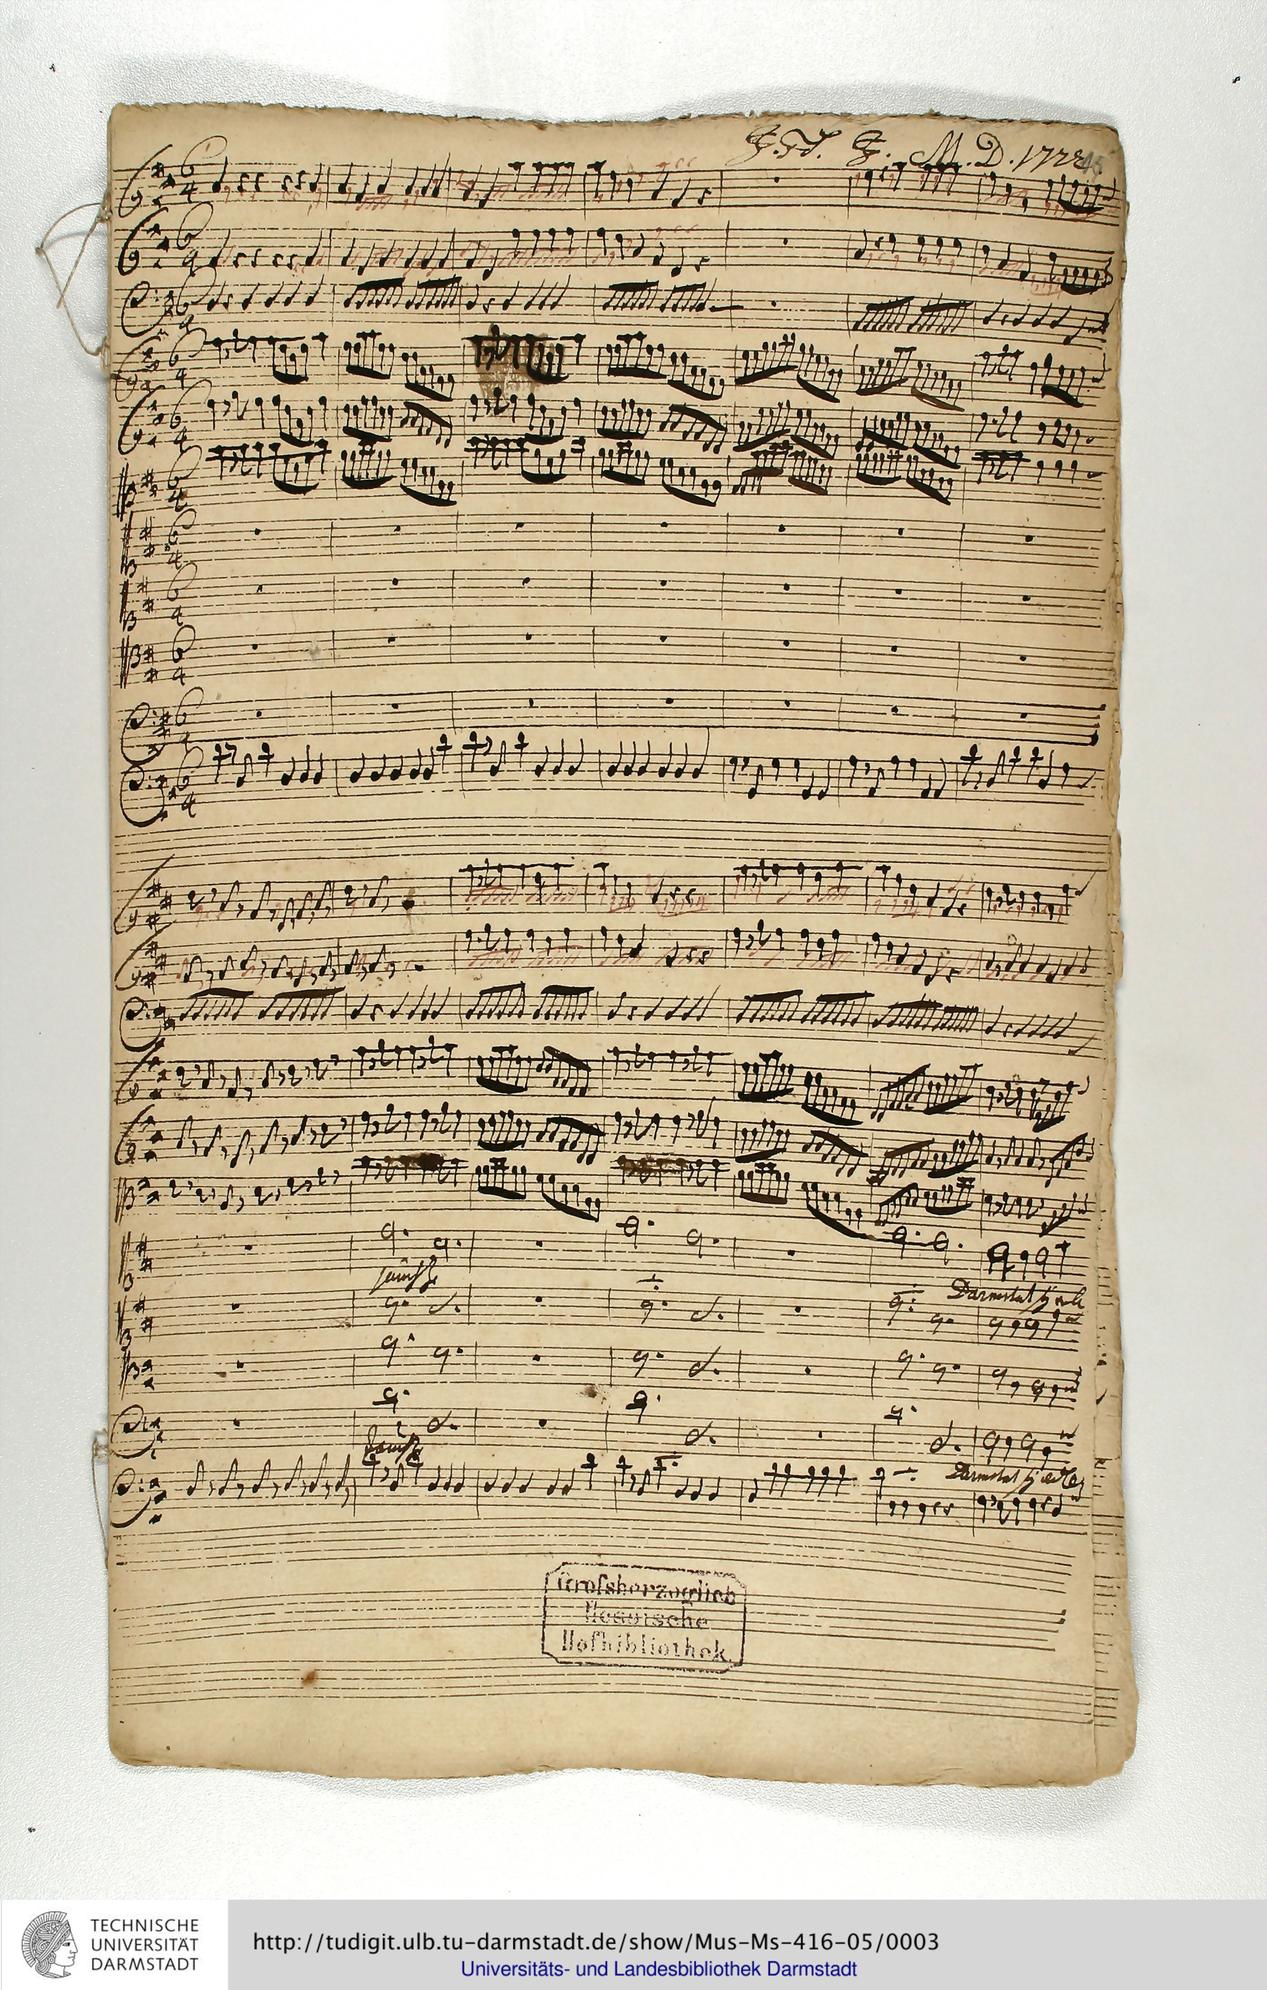 M. D. 1722
jauchzt
Darmstat
jauchzt
Darmstat
Grossherzoglich
Hessische
Hofbibliothek.
TECHNISCHE
UNIVERSITÄT
DARMSTADT
http://tudigit.ulb.tu-darmstadt.de/show/Mus-Ms-416-05/0003
Universitäts- und Landesbibliothek Darmstadt